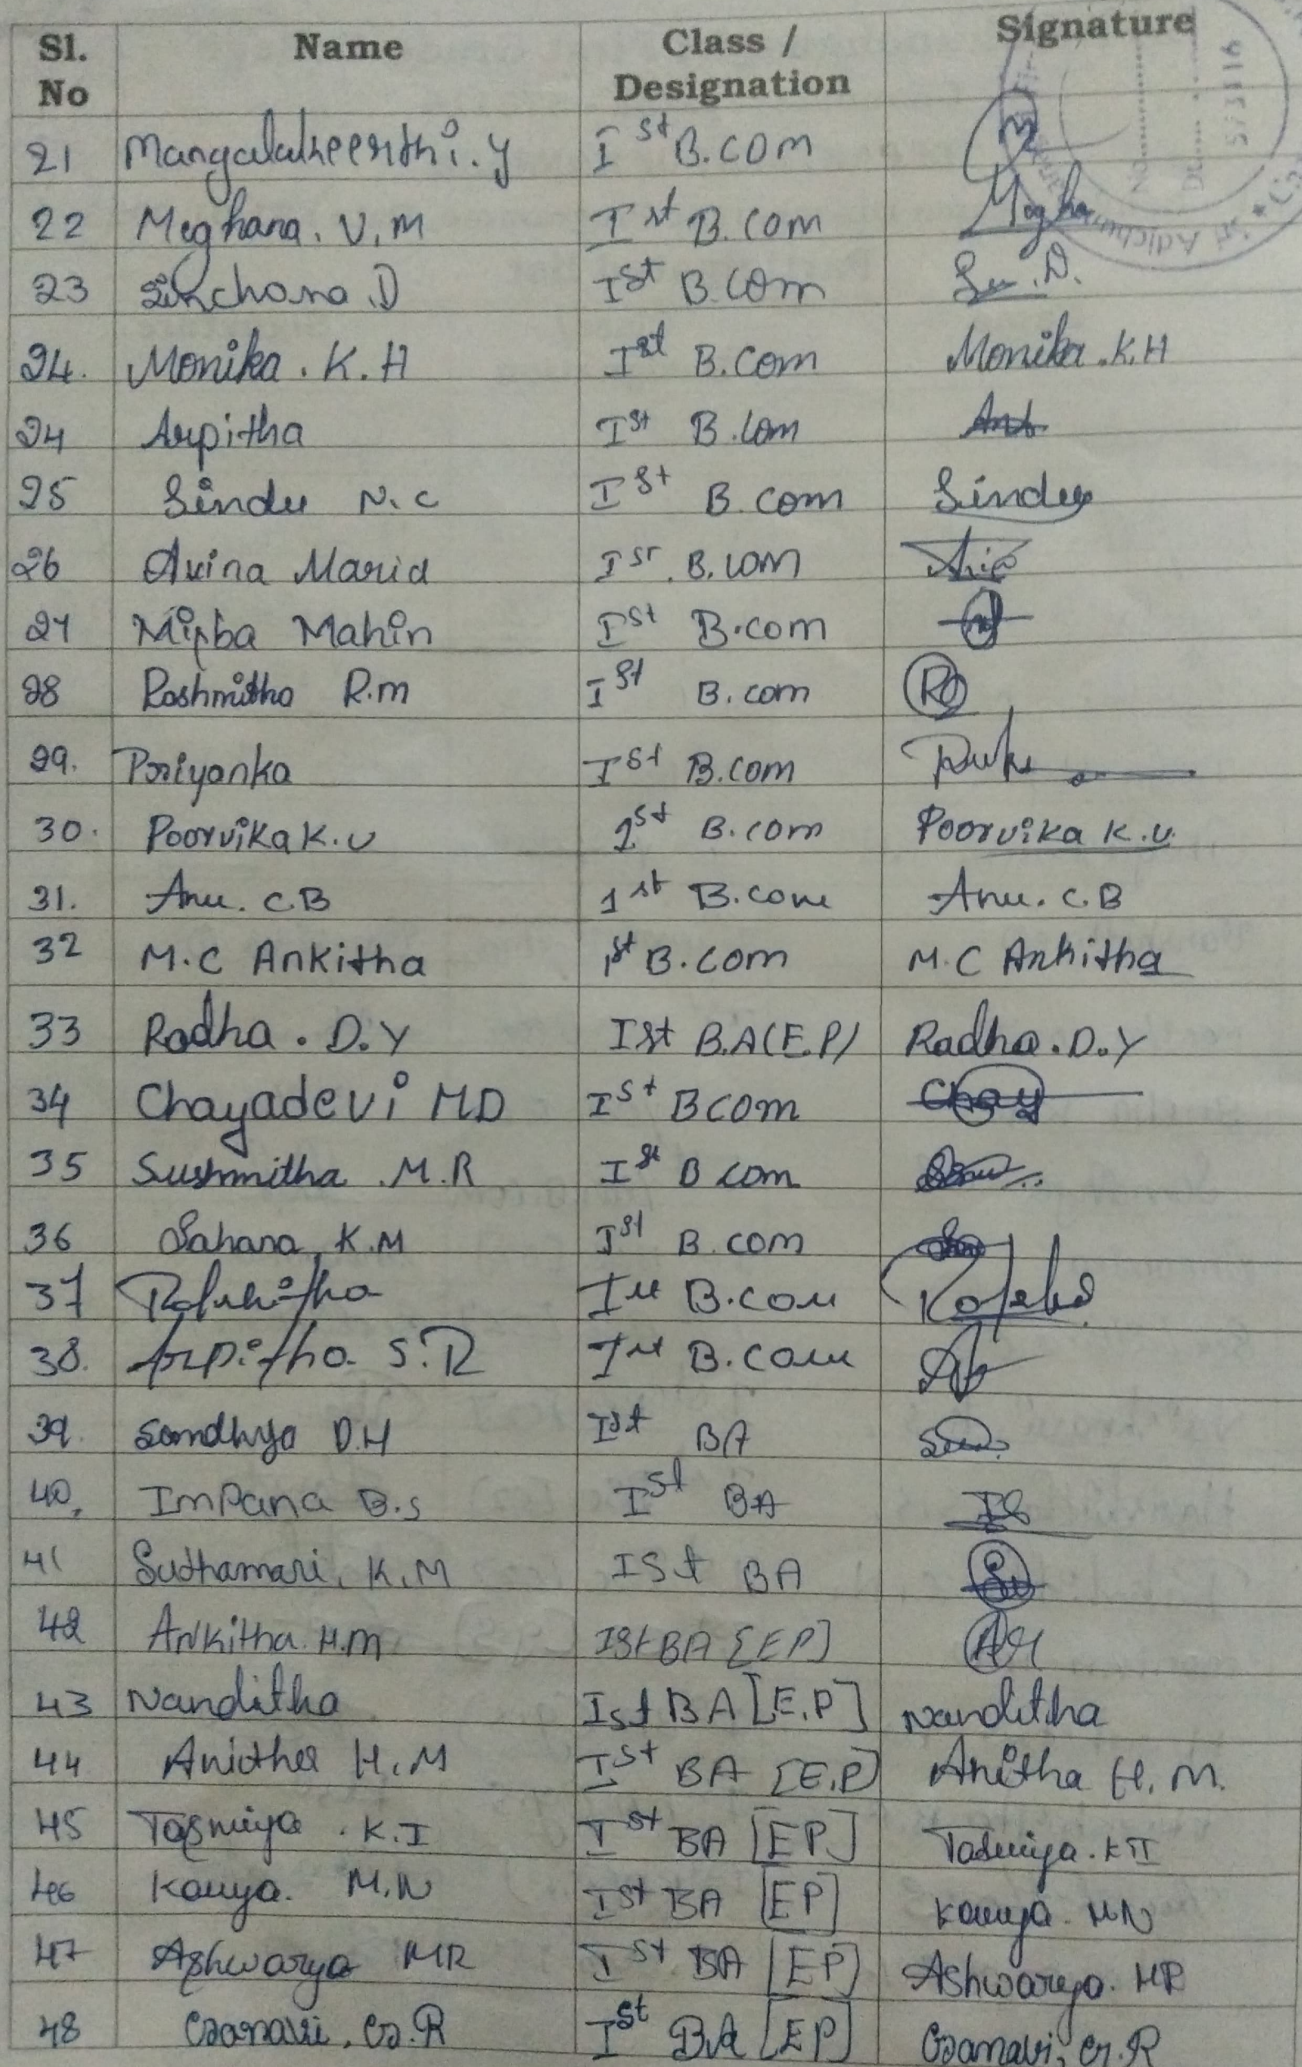 Sl. No Name Class / Designation Signature
21 Mangalakeerthi.y Ist B.com
22 Meghana. V.M Ist B.com Megha
23 Sinchana.D Ist B.com
24. Monika. K.H Ist B.com Monika.K.H
24 Arpitha Ist B.com
25 Sindu N.C Ist B.com Sindu
26 Avina Maria Ist B.com
27 Misba Mahin Ist B.com
28 Rashmitha R.m Ist B.com
29. Priyanka Ist B.com
30. Poorvika K.U 1st B.com Poorvika K.U.
31. Anu. C.B 1st B.com Anu. C.B
32 M.C Ankitha 1st B.com M.C Ankitha
33 Radha. D.Y Ist B.A(E.P) Radha.D.Y
34 Chayadevi MD Ist Bcom Chay
35 Sushmitha .M.R Ist B com
36 Sahana K.M Ist B.com
37 Rakshitha Ist B.com
38. Arpitha S.R Ist B.com
39. Sandhya D.H Ist BA
40. Impana B.S Ist BA
41 K.M ISt BA
42 Ankitha.H.m Ist BA [EP]
43 Nanditha Ist BA [E.P] Nanditha
44 Anitha H.M Ist BA [E.P] Anitha H.M.
45 Tasmiya .K.I Ist BA [EP] Tasmiya.KI
46 Kavya. M.N Ist BA [EP] Kavya. MN
47 Ashwarya MR Ist BA [EP] Ashwarya. MR
48 Ganavi. G.R Ist BA [EP] Ganavi. G.R